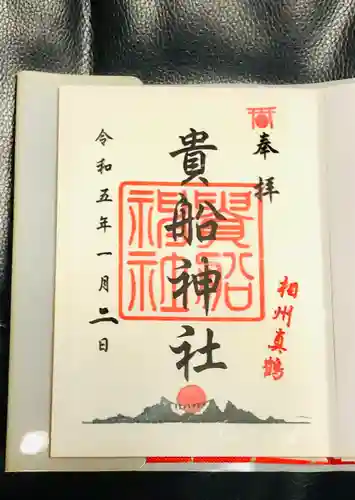 奉拝
相州真鶴
貴船神社
貴船
神社
令和五年一月二日